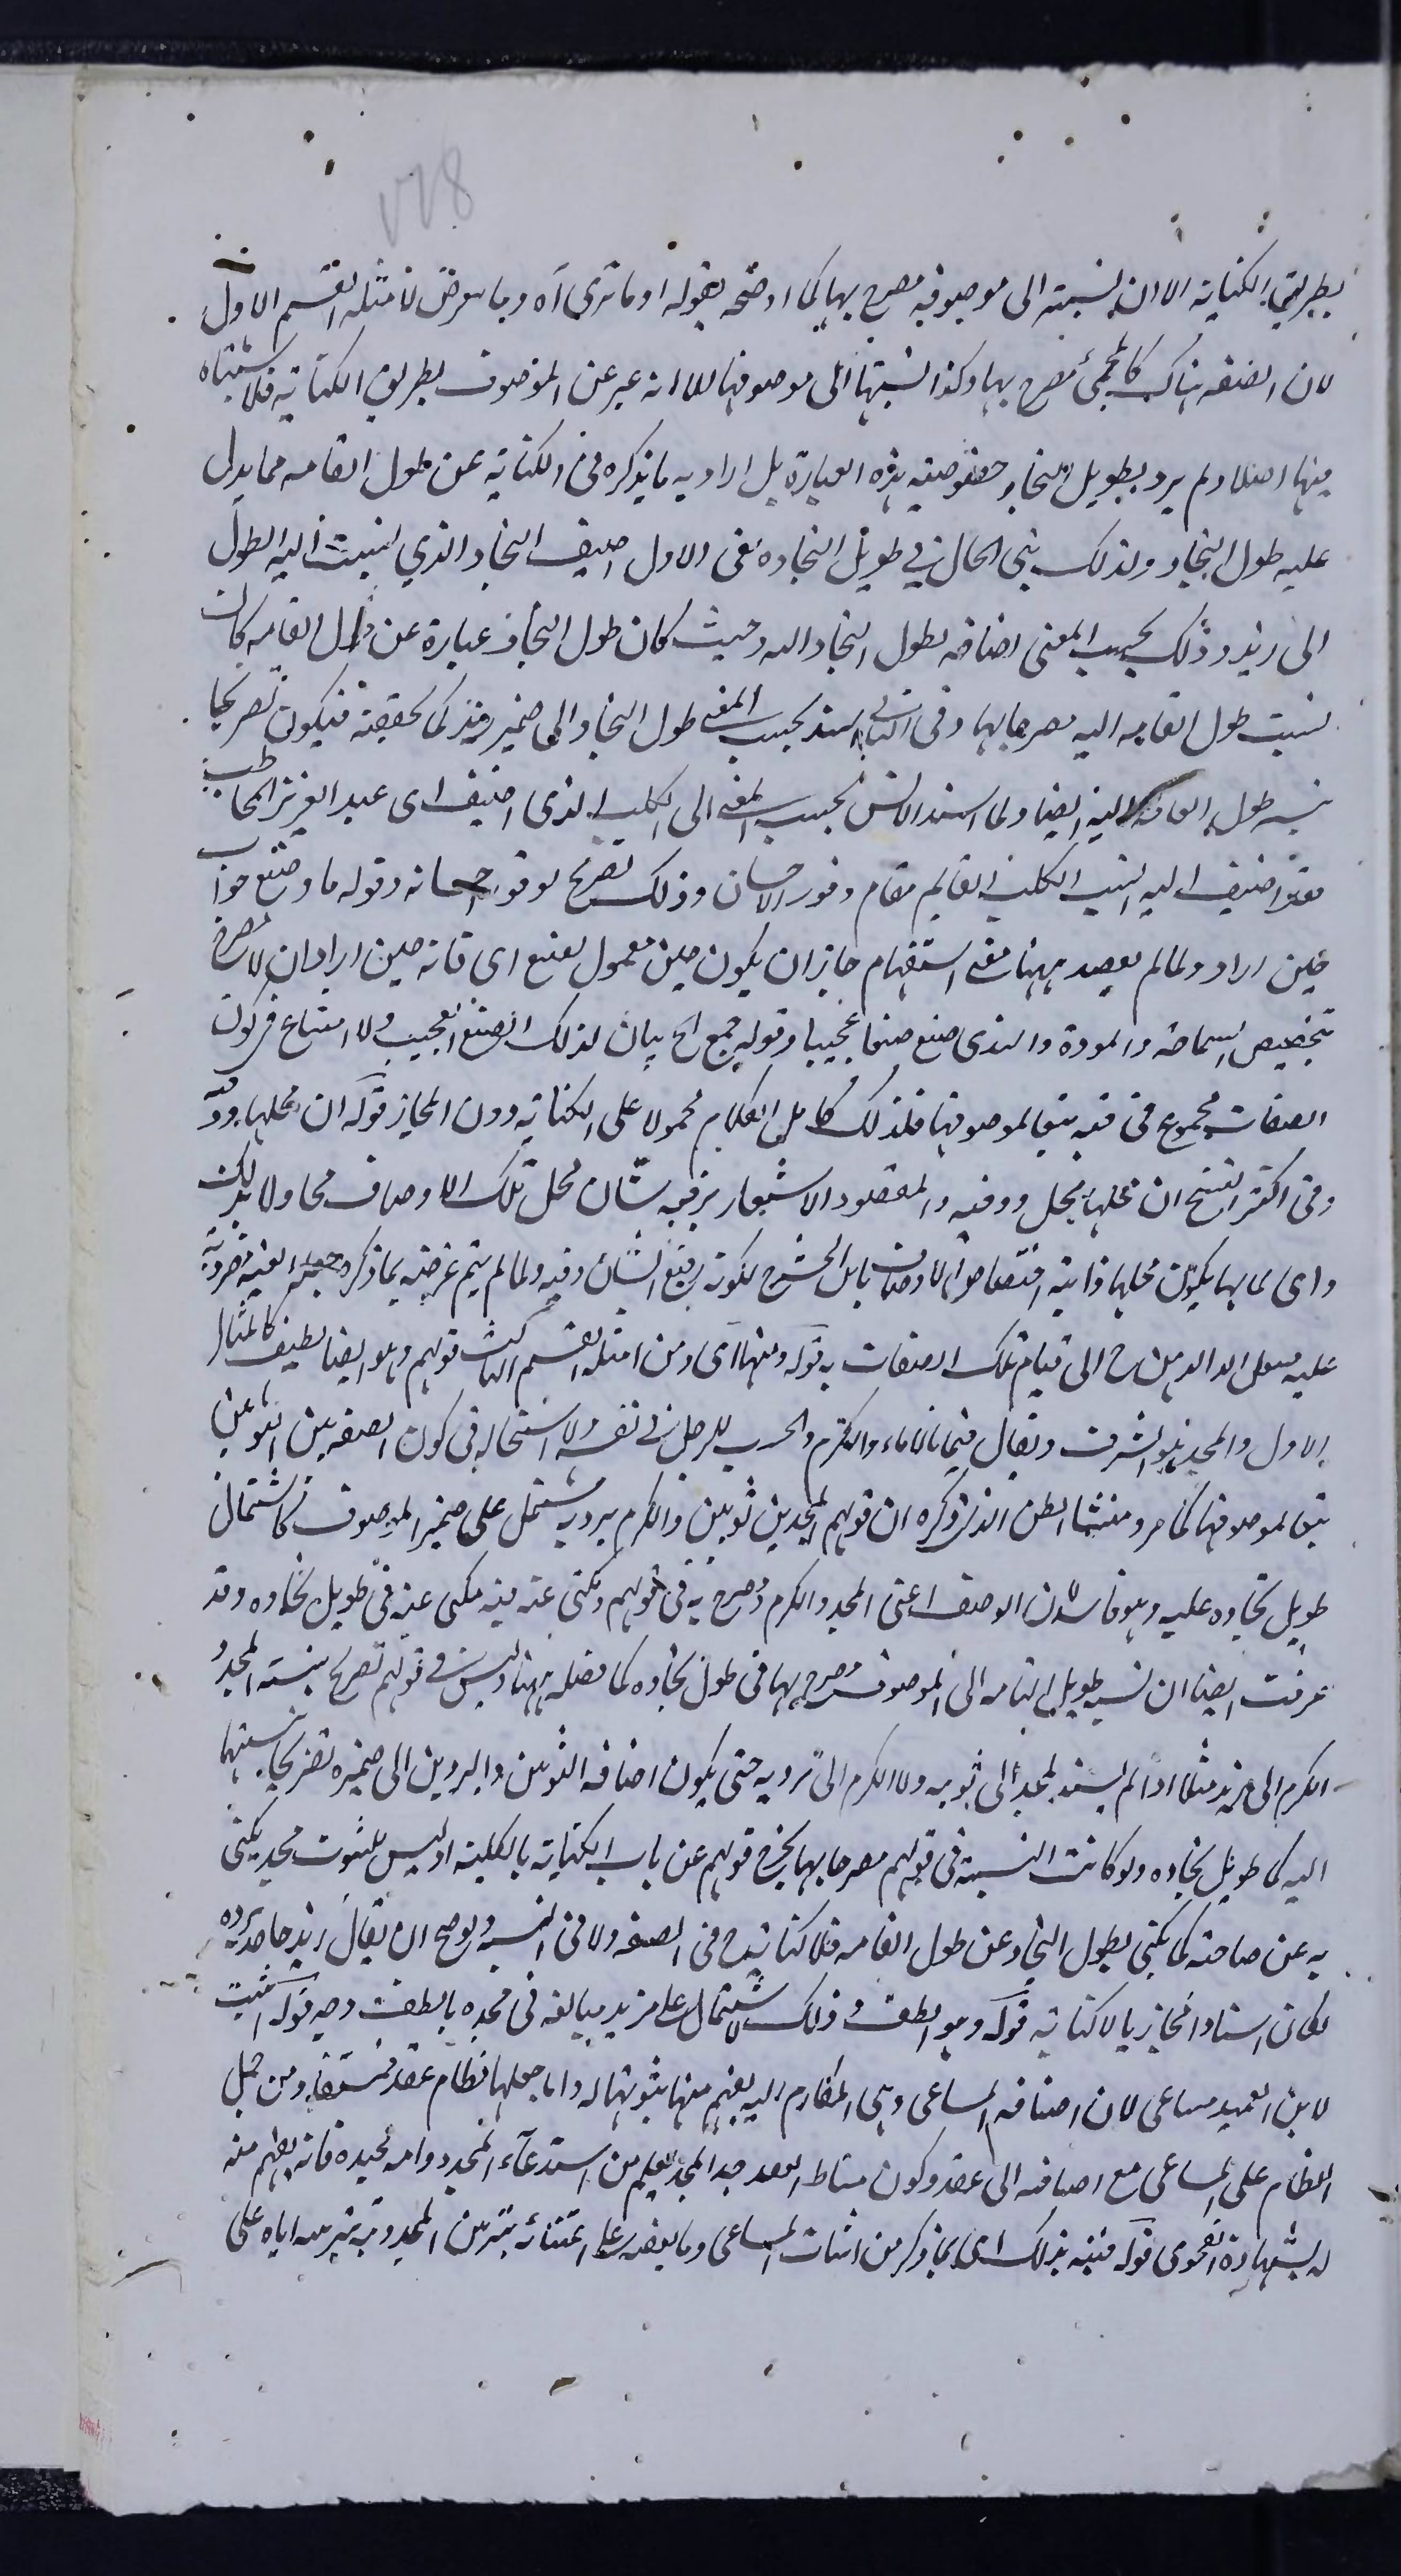 ٧٧8
بطريق الكناية الا ان نسبته الى موصوفه مصرح بها كما اوضحه بقوله او ما ترى اه وربما يعرض لامثلة القسم الاول
لان الصفة هناك كالمجئ مصرح بها وكذا نسبتها الى موصوفها الا انه عبر عن الموصوف بطريق الكناية فلا اشتباه
فيها اصلا ولم يرد بطويل النجاد خصوصية هذه العبارة بل اراد به ما يذكره في الكناية عن طول القامة مما يدل
عليه طول النجاد ولذلك بنى الحال في طويل النجاده ففى الاول اضيف النجاد الذي نسبت اليه الطول
الى زيد وذلك بحسب المعنى اضافة لطول النجاد اليه وحيث كان طول النجاد عبارة عن طول القامه كان
نسبت طول القامه اليه مصرحا بها وفى الثانى اسند بحسب المعنى طول النجاد الى ضمير زيد كما تحققته فيكون تصريحا
بنسبة طول القامة اليه ايضا ولما اسند الانس بحسب المعنى الى الكلب الذى اضيف الى عبد العزيز المخاطب
فقد اضيف اليه انس الكلب القايم مقام وفور الاحسان وذلك تصريح لوفور احسانه وقوله ما وصنع جواب
حين اراد ولما لم يقصد ههنا معنى استفهام جاز ان يكون حين معمول لصنع اى فانه حين اراد ان لا يصرح
بتخصيص السماحة والمروة والندى صنع صنعا عجيبا وقوله جمع الخ بيان لذلك الصنع العجيب ولا امتناع فى كون
الصفات مجموع فى قبة تبعا لموصوفها فلذلك كان الكلام محمولا على الكناية دون المجاز قوله ان محلها ذو قبه
وفى اكثر النسخ ان محلها محل ذو قبه والمقصود الاشعار برفعه شان محل تلك الاوصاف محاولا بذلك
واى لما بها يكون محلها ذا قبة اختصاص الاوصاف بابن الحشرج لكونه رفيع الشان وفيه ولما لم يتم غرضه بما ذكره جعل القبه مضروبة
عليه الى قيام تلك الصفات به قوله ومنها اى ومن امثله القسم الثالث قولهم وهو ايضا لطيف كالمثال
الاول والمجد هو الشرف ويقال فيما بالاباء والكرم والحسب للرجل فى نفسه ولا استحاله فى كون الصفة بين الثوبين
تبعا لموصوفها كما مر ومنشأ الظن الذى ذكره ان قولهم المجد بين ثوبيه والكرم برديه يشتمل على ضمير الموصوف كاشتمال
طويل نجاده عليه وهو فاسد لان الوصف اعنى المجد والكرم مصرح به فى قولهم ومكنى عنه فيه مكنى عنه فى طويل نجاده وقد
عرفت ايضا ان نسبه طويل القامه الى الموصوف مصرح بها فى طول نجاده كما فصله ههنا وليس فى قولهم تصريح بنسبة المجد و
الكرم الى زيد مثلا اذ لم يسند المجد الى ثوبيه ولا الكرم الى برديه حتى يكون اضافه الثوبين والبردين الى ضميره تصريحا بنسبتهما
اليه كما طويل نجاده ولو كانت النسبة فى قولهم مصرحا بها لخرج قولهم عن باب الكناية بالكلية اذ ليس للثوب مجد يكنى
به عن صاحبه كما يكنى بطول النجاد عن طول القامه فلا كناية ح فى الصفه ولا فى النسبه ولو صح ان يقال زيد ماجد برده
لكان اسنادا مجازيا لا كناية قوله وهو الطف وذلك لاشتماله على مزيد مبالغه فى مجده بالطف وجه قوله اثبت
لابن العميد مساعى لان اضافه المساعى وهى المكارم اليه يفهم منها ثبوتها له واما جعلها نظام عقد فمستفاد من حمل
النظام على المساعى مع اضافته الى عقد وكون مناط العقد جيد المجد يعلم من استدعاء المجد دوامه لجيده فانه يفهم منه
له بشهادة الفحوى قوله فنبه بذلك اى بما ذكر من اثبات المساعى وما يعضده على اعتنائه بتزيين المجد وبه بتزيينه اياه على